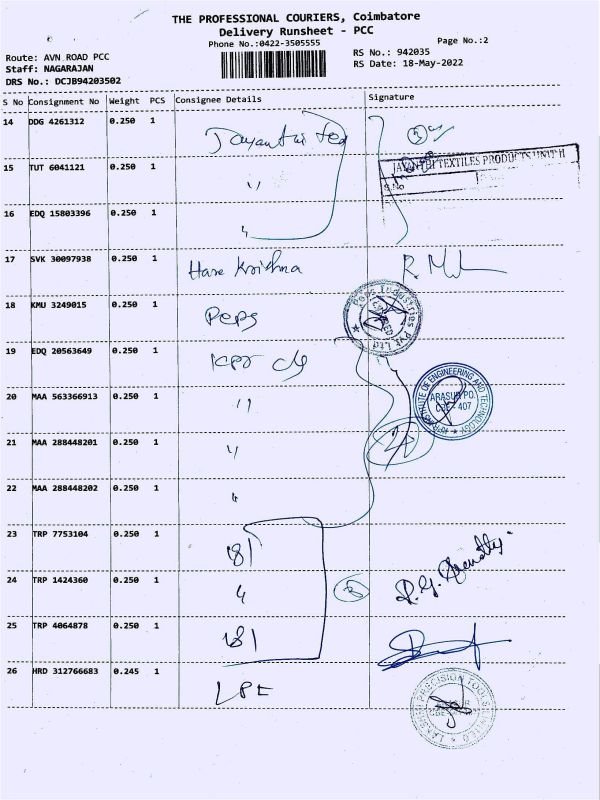 THE PROFESSIONAL COURIERS, Coimbatore
Delivery Runsheet - PCC
Phone No.:0422-3505555
Page No.:2
Route: AVN ROAD PCC
Staff: NAGARAJAN
DRS No.: DCJB94203502
RS No.: 942035
RS Date: 18-May-2022
S No Consignment No Weight PCS Consignee Details Signature
14 DDG 4261312 0.250 1
JAYANTHI TEXTILES PRODUCTS UNIT II
S.No
15 TUT 6041121 0.250 1 "
16 EDQ 15803396 0.250 1 "
17 SVK 30097938 0.250 1 Hare Krishna
18 KMU 3249015 0.250 1 Peps
Peps Industries Pvt Ltd
19 EDQ 20563649 0.250 1 KPR clg
20 MAA 563366913 0.250 1 "
INSTITUTE OF ENGINEERING AND TECHNOLOGY
ARASUR PO.
CBE - 407
21 MAA 288448201 0.250 1 "
22 MAA 288448202 0.250 1 "
23 TRP 7753104 0.250 1 181
24 TRP 1424360 0.250 1 "
3
25 TRP 4064878 0.250 1 181
26 HRD 312766683 0.245 1
PRECISION TOOLS LIMITED